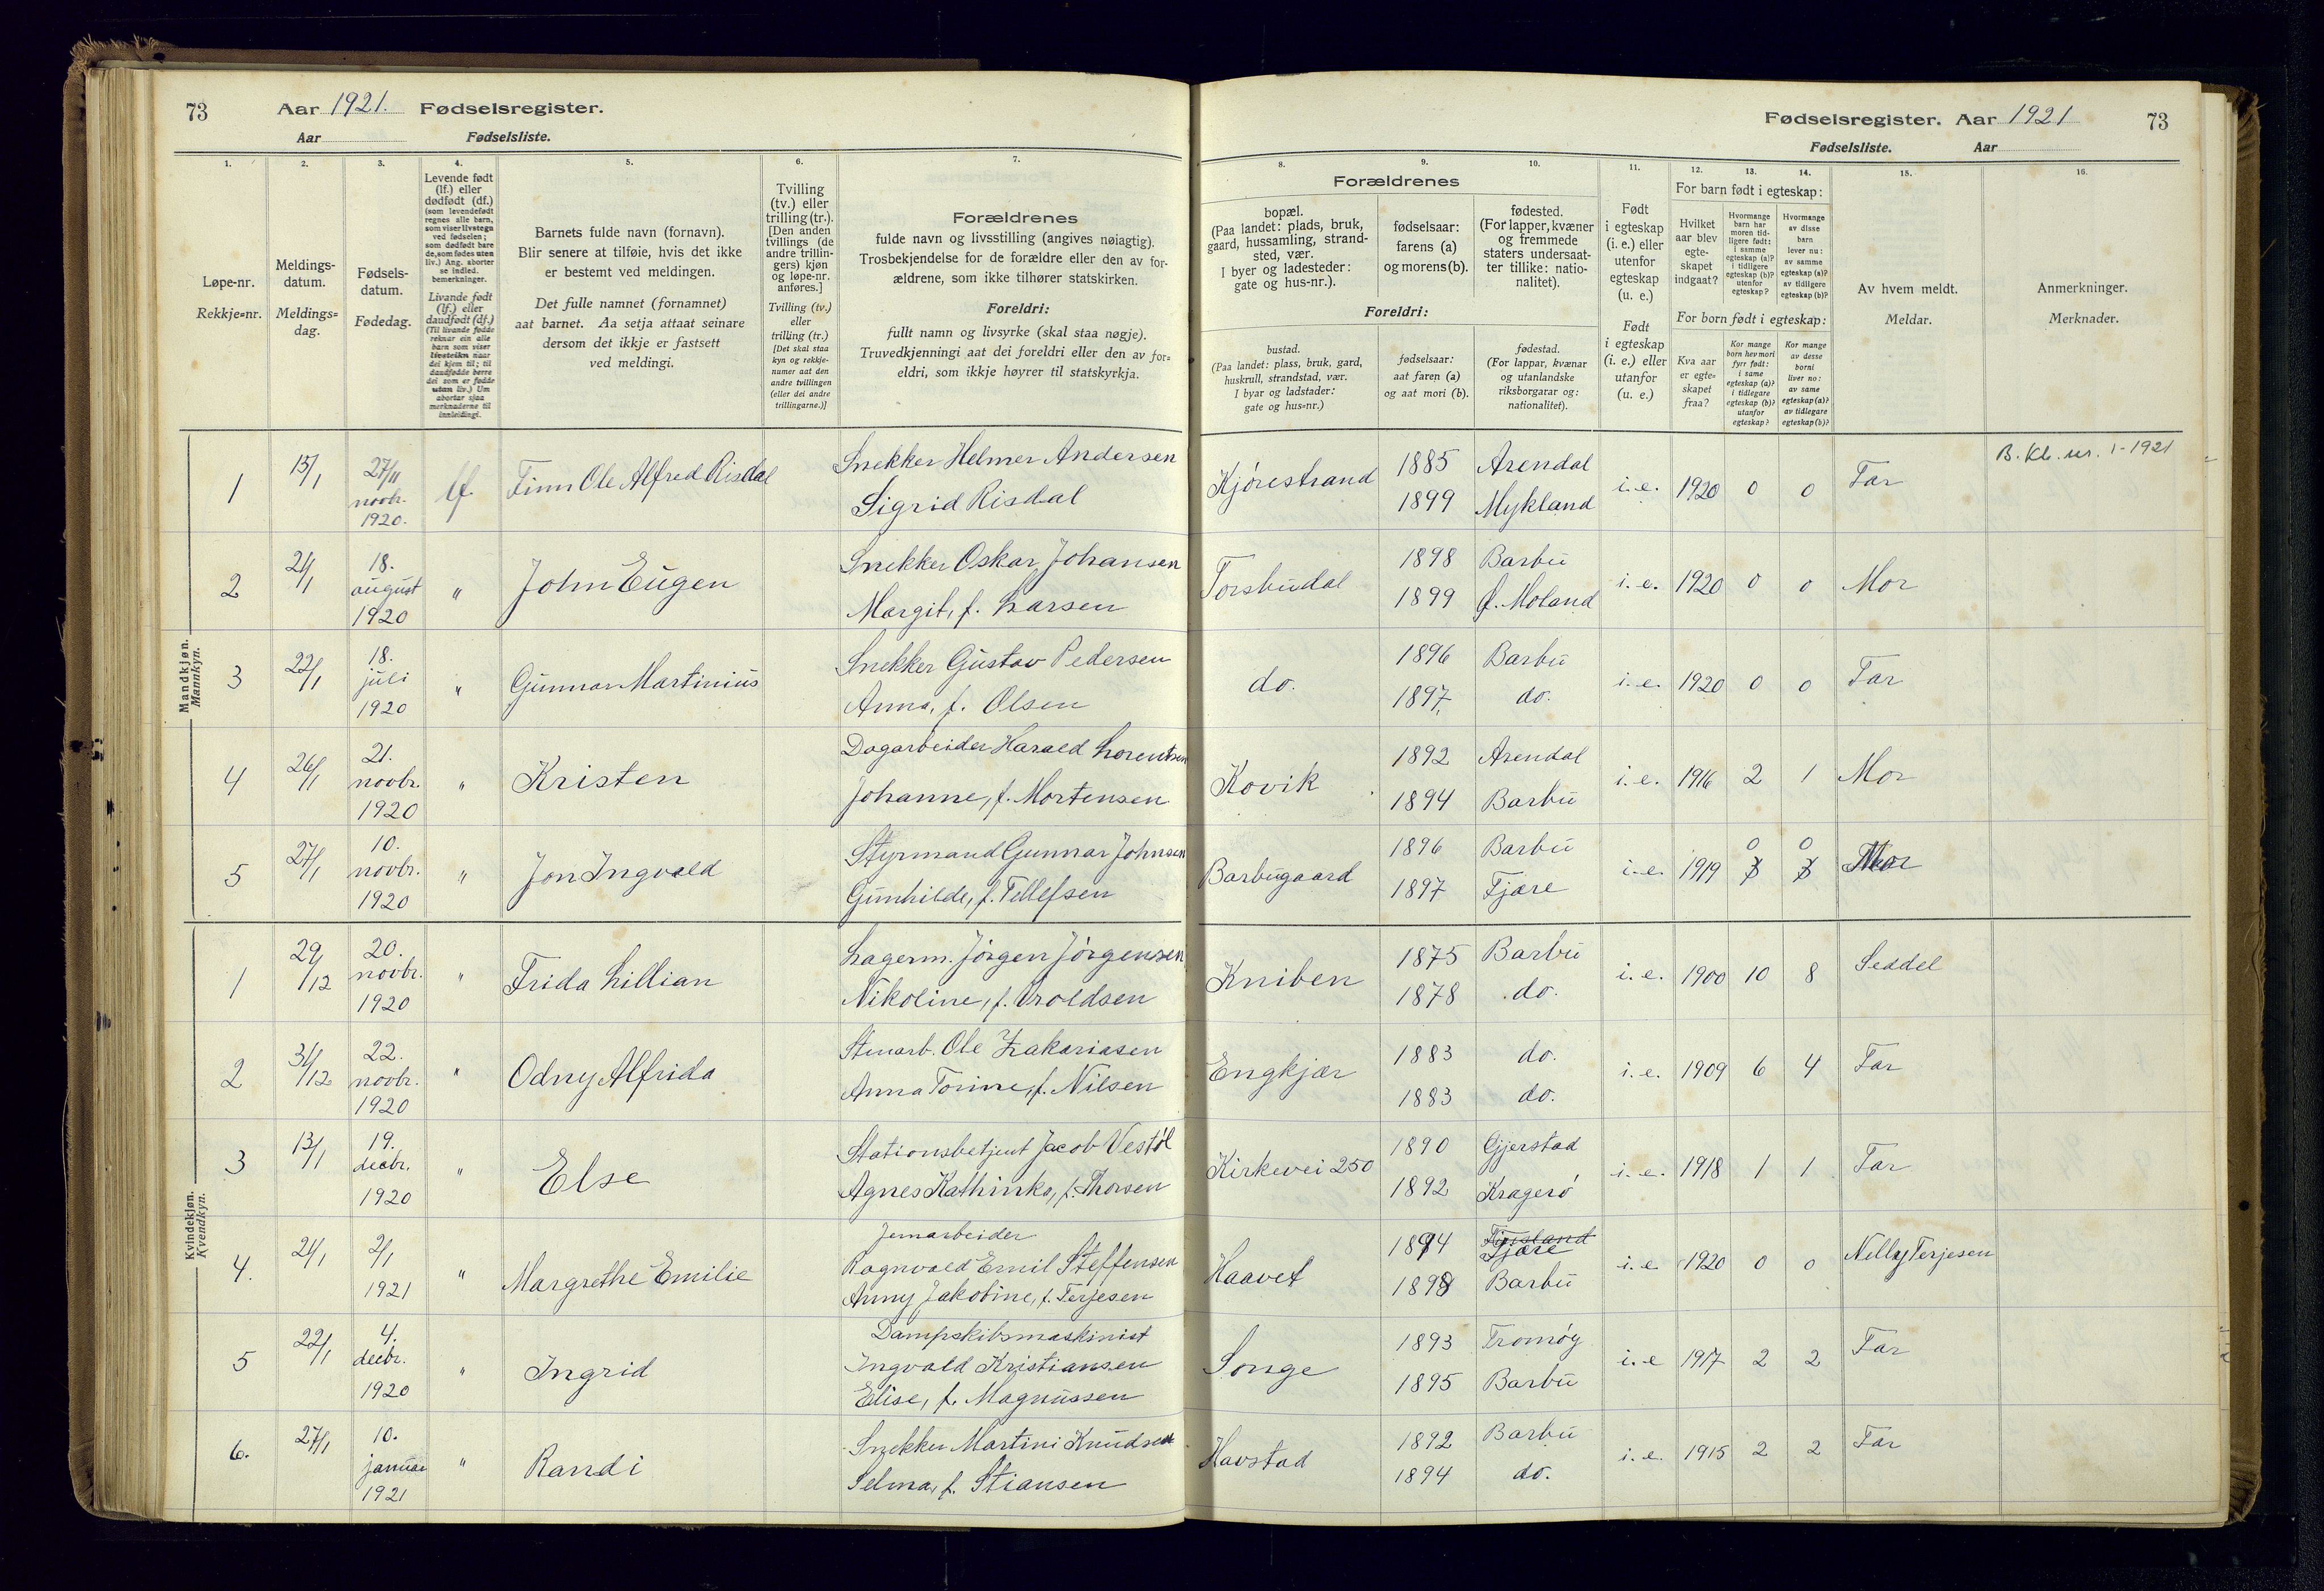 73 Aar 1921. Fødselsregister.
Aar Fødselsliste.
Fødselsregister. Aar 1921 73
Fødselsliste. Aar
1. 2. 3. 4. 5. 6. 7.
8. 9. 10. 11. 12. 13. 14. 15. 16.
Løpe-nr.
Rekkje=nr.
Meldings-
datum.
Meldings=
dag.
Fødsels-
datum.
Fødedag.
Levende født
(lf.) eller
dødfødt (df.)
(som levendefødt
regnes alle barn,
som viser livstegn
ved fødselen;
som dødfødt bare
de, som fødes uten
liv.) Ang. aborter
se indled.
bemerkninger.
Livande født
(lf.) eller
daudfødt (df.)
(Til livande fødde
reknar ein alle
barn som viser
livsteikn naar
dei kjem til; til
daudfødde berre
dei som er fødde
utan liv.) Um
abortar sjaa
merknaderne til
innleidingi.
Barnets fulde navn (fornavn).
Blir senere at tilføie, hvis det ikke
er bestemt ved meldingen.
Det fulle namnet (fornamnet)
aat barnet. Aa setja attaat seinare
dersom det ikkje er fastsett
ved meldingi.
Tvilling
(tv.) eller
trilling (tr.).
[Den anden
tvillings (de
andre trillin-
gers) kjøn
og løpe-nr.
anføres.]
Tvilling (tv.)
eller
trilling (tr.)
[Det skal staa
kyn og rekkje-
numer aat den
andre tvillingen
(eller dei andre
trillingarne.)]
Forældrenes
fulde navn og livsstilling (angives nøiagtig).
Trosbekjendelse for de forældre eller den av for-
ældrene, som ikke tilhører statskirken.
Foreldri:
fullt namn og livsyrke (skal staa nøgje).
Truvedkjenningi aat dei foreldri eller den av for=
eldri, som ikkje høyrer til statskyrkja.
Forældrenes
bopæl.
(Paa landet: plads, bruk,
gaard, hussamling, strand-
sted, vær.
I byer og ladesteder:
gate og hus-nr.).
fødselsaar:
farens (a)
og morens (b).
fødested.
(For lapper, kvæner
og fremmede
staters undersaat-
ter tillike: natio-
nalitet).
Foreldri:
bustad.
(Paa landet: plass, bruk, gard,
huskrull, strandstad, vær.
I byar og ladstader:
gate og hus=nr.)
fødselsaar:
aat faren (a)
og aat mori (b).
fødestad.
(For lappar, kvænar
og utanlandske
riksborgarar og:
nationalitet).
Født
i egteskap
(i. e.) eller
utenfor
egteskap
(u. e.)
Født
i egteskap
(i. e.) eller
utanfor
(u. e.)
For barn født i egteskap:
Hvilket
aar blev
egte-
skapet
indgaat?
Hvormange
barn har
moren tid-
ligere født:
i samme
egteskap (a)?
i tidligere
egteskap (b)?
utenfor
egteskap?
Hvormange
av disse
barn
lever nu:
av samme
egteskap (a)?
av tidligere
egteskap (b)?
For born født i egteskap:
Kva aar
er egte=
skapet
fraa?
Kor mange
born hev mori
fyrr født:
i same
egteskap (a)?
i tidlegare
egteskap (b)?
utanfor
egteskap?
Kor mange
av desse
borni
liver no:
av same
egteskap (a)?
av tidlegare
egteskap (b)?
Av hvem meldt.
Meldar.
Anmerkninger.
Merknader.
Mandkjøn.
Mannkyn.
1 15/1 27/11 novbr. 1920. lf. Finn Ole Alfred Risdal Snekker Helmer Andersen Kjørestrand 1885 Arendal i. e. 1920 0 0 Far B. Kl. nr. 1-1921
Sigrid Risdal 1899 Mykland
2 21/1 18. august 1920 " John Eugen Snekker Oskar Johansen Torsbudal 1898 Barbu i. e. 1920 0 0 Mor
Margit, f. Larsen 1899 f. Moland
3 22/1 18. juli 1920 " Gunnar Martinius Snekker Gustav Pedersen do. 1896 Barbu i. e. 1920 0 0 Far
Anna, f. Olsen 1897, do.
4 26/1 21. novbr. 1920 " Kristen Dagarbeider Harald Lorentsen Kovik 1892 Arendal i. e. 1916 2 1 Mor
Johanne, f. Mortensen 1894 Barbu
5 27/1 10. novbr. 1920 " Jon Ingvald Styrmand Gunnar Johnsen Barbugaard 1896 Barbu i. e. 1919 0 0
Gunhilde, f. Tellefsen 1897 Fjære
Kvindekjøn.
Kvendkyn.
1 29/12 20. novbr. 1920 " Frida Lillian Lagerm. Jørgen Jørgensen Kniben 1875 Barbu i. e. 1900 10 8 Seddel
Nikoline, f. Aroldsen 1878 do.
2 31/12 22. novbr. 1920 " Odny Alfrida Stenarb. Ole Zakariasen Engkjær 1883 do. i. e. 1909 6 4 Far
Anna Torine, f. Nilsen 1883 do.
3 13/1 19. decbr. 1920 " Else Stationsbetjent Jacob Vestøl Kirkevei 250 1890 Gjerstad i. e. 1918 1 1 Far
Agnes Kathinka, f. Thorsen 1892 Kragerø
4. 21/1 2/1 1921 " Margrethe Emilie Jernarbeider
Ragnvald Emil Steffensen Haavet 1894 Fjære i. e 1920 0 0 Nelly Terjesen
Anny Jakobine, f. Terjesen 1898 Barbu
5 22/1 4. decbr. 1920 " Ingrid Dampskibsmaskinist
Ingvald Kristiansen Songe 1893 Tromøy i. e 1917 2 2 Far
Elise, f. Magnussen 1895 Barbu
6. 27/1 10. januar 1921 " Randi Snekker Martini Knudsen Havstad 1892 Barbu i. e. 1915 2 2 Far
Selma, f. Stiansen 1894 do.